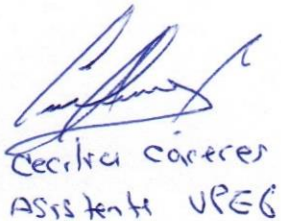 Cecilia Cáceres
Asistente UPEG